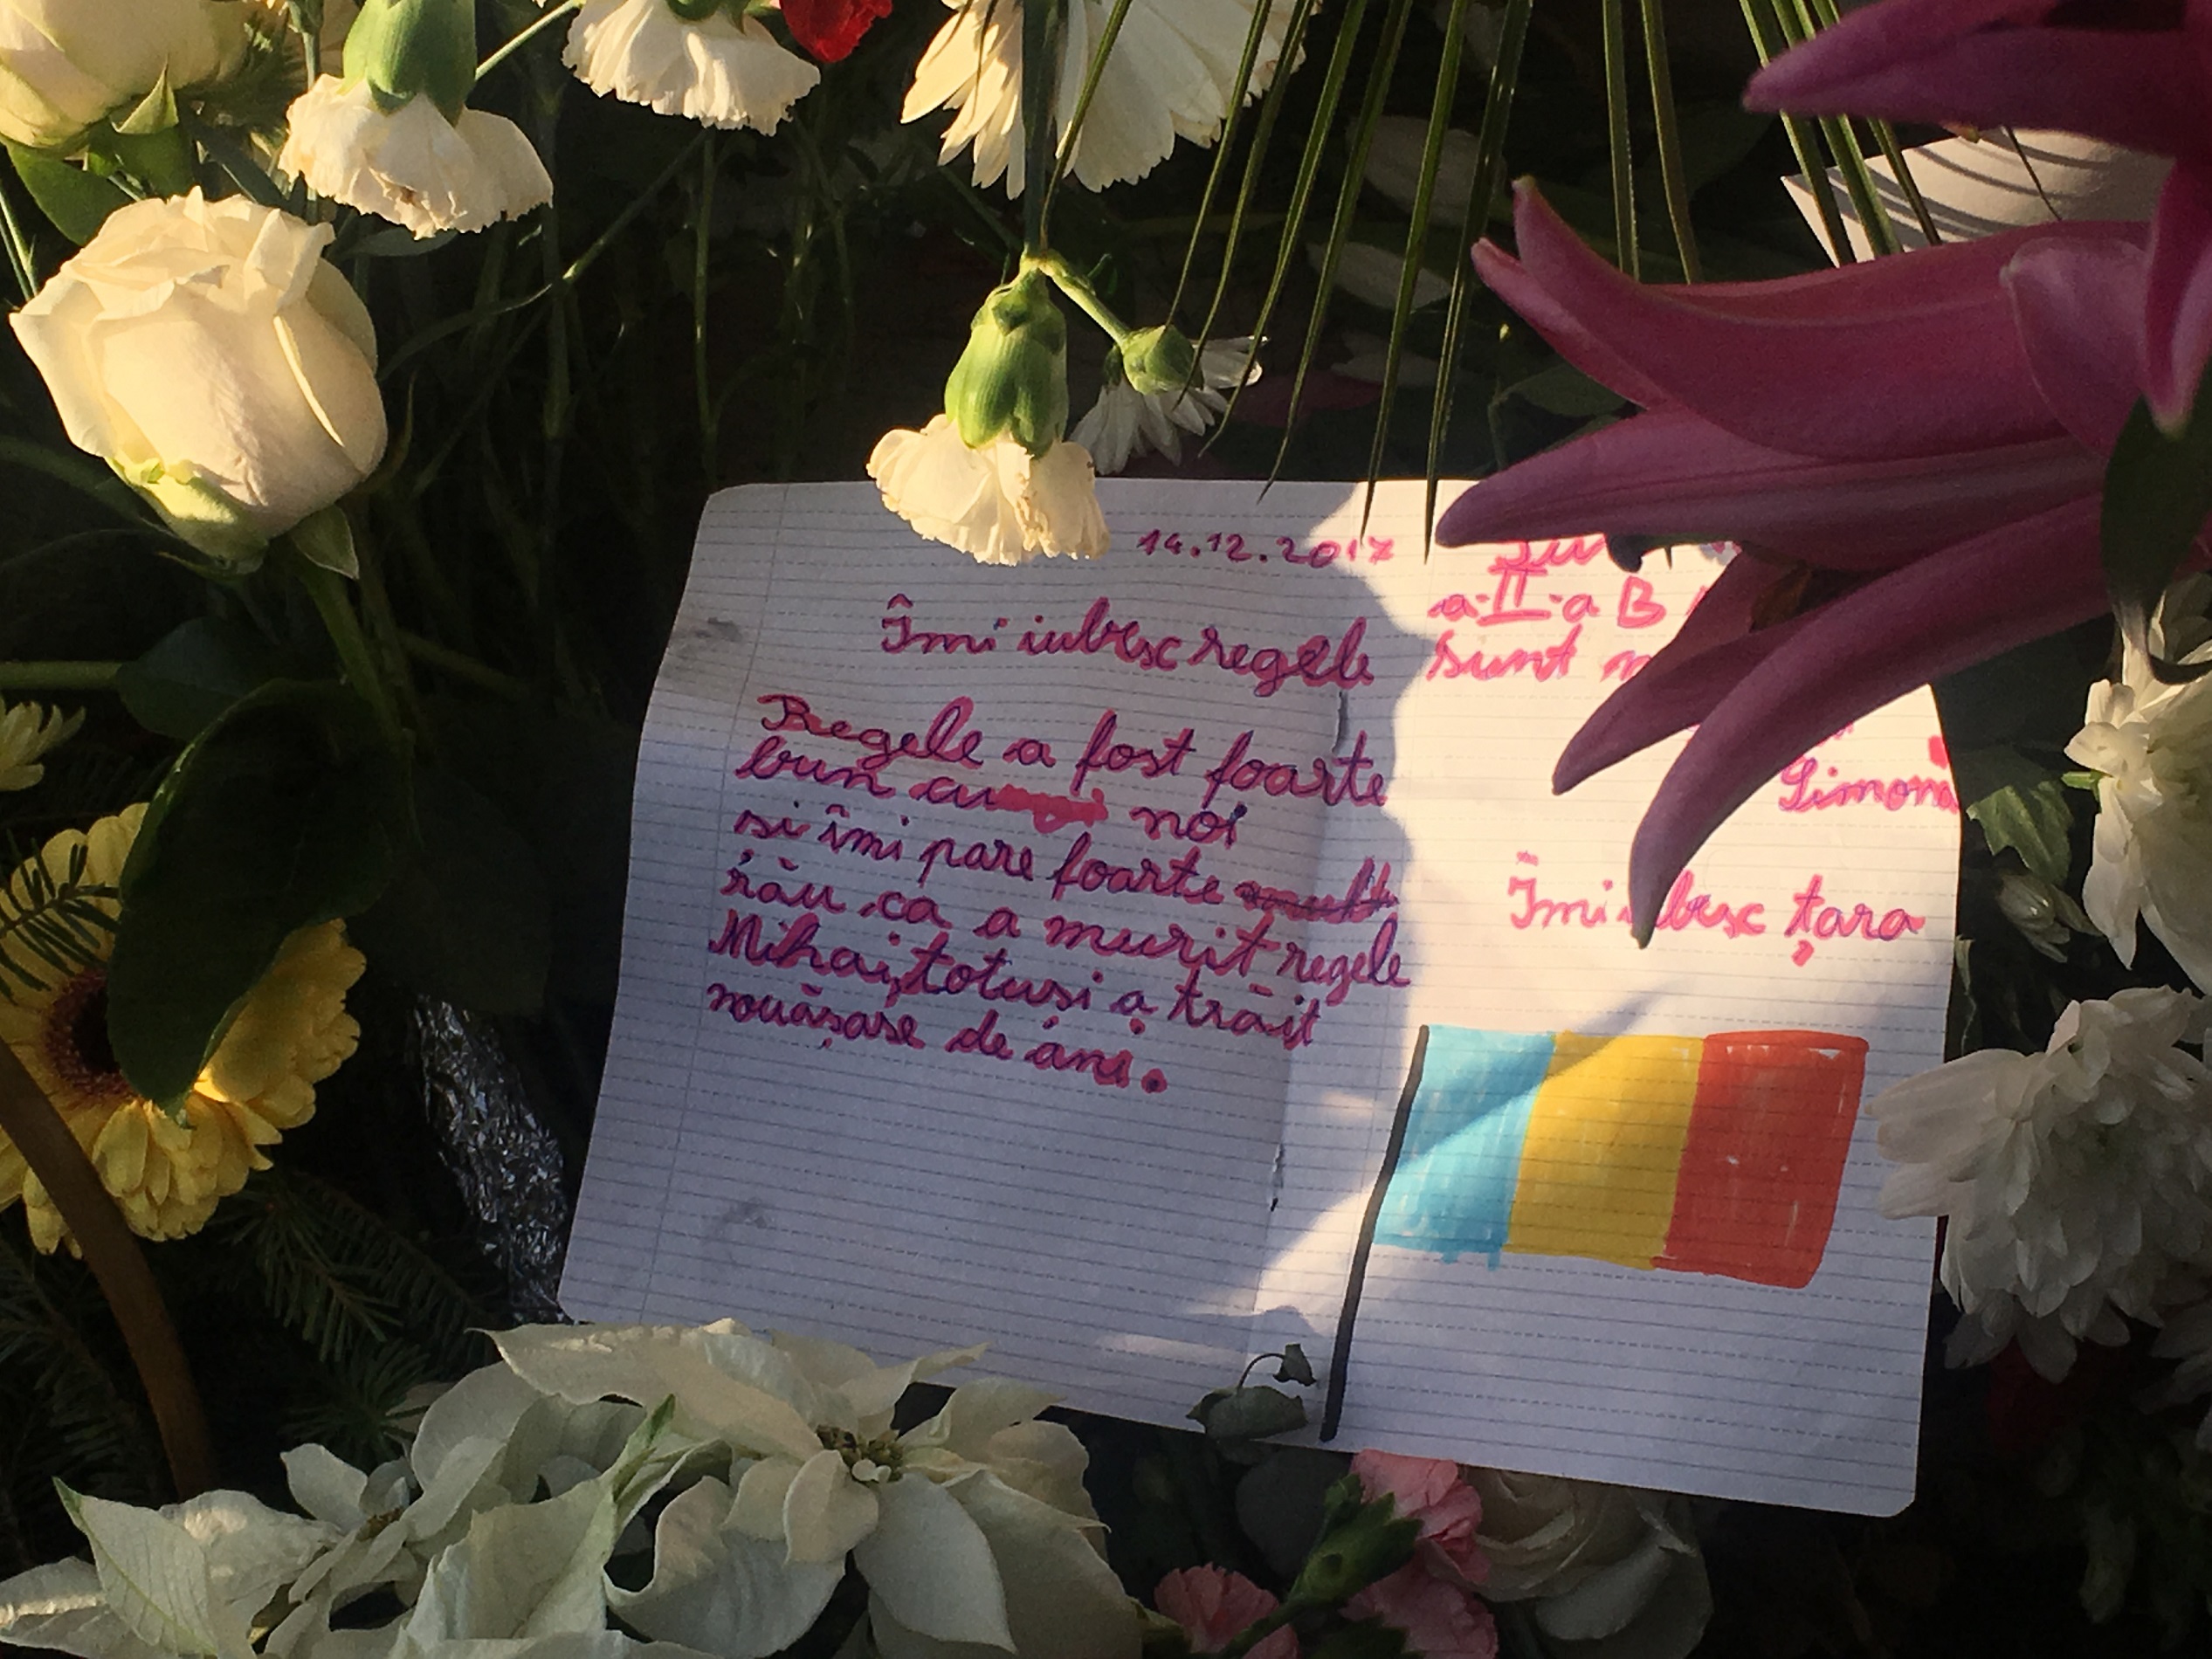 14.12.2017
Îmi iubesc regele
Regele a fost foarte
bun cu noi
si îmi pare foarte mult
rău ca a murit regele
Mihai, totuși a trăit
nouășase de ani.
a-II-a B
sunt
Simona
Îmi iubesc țara